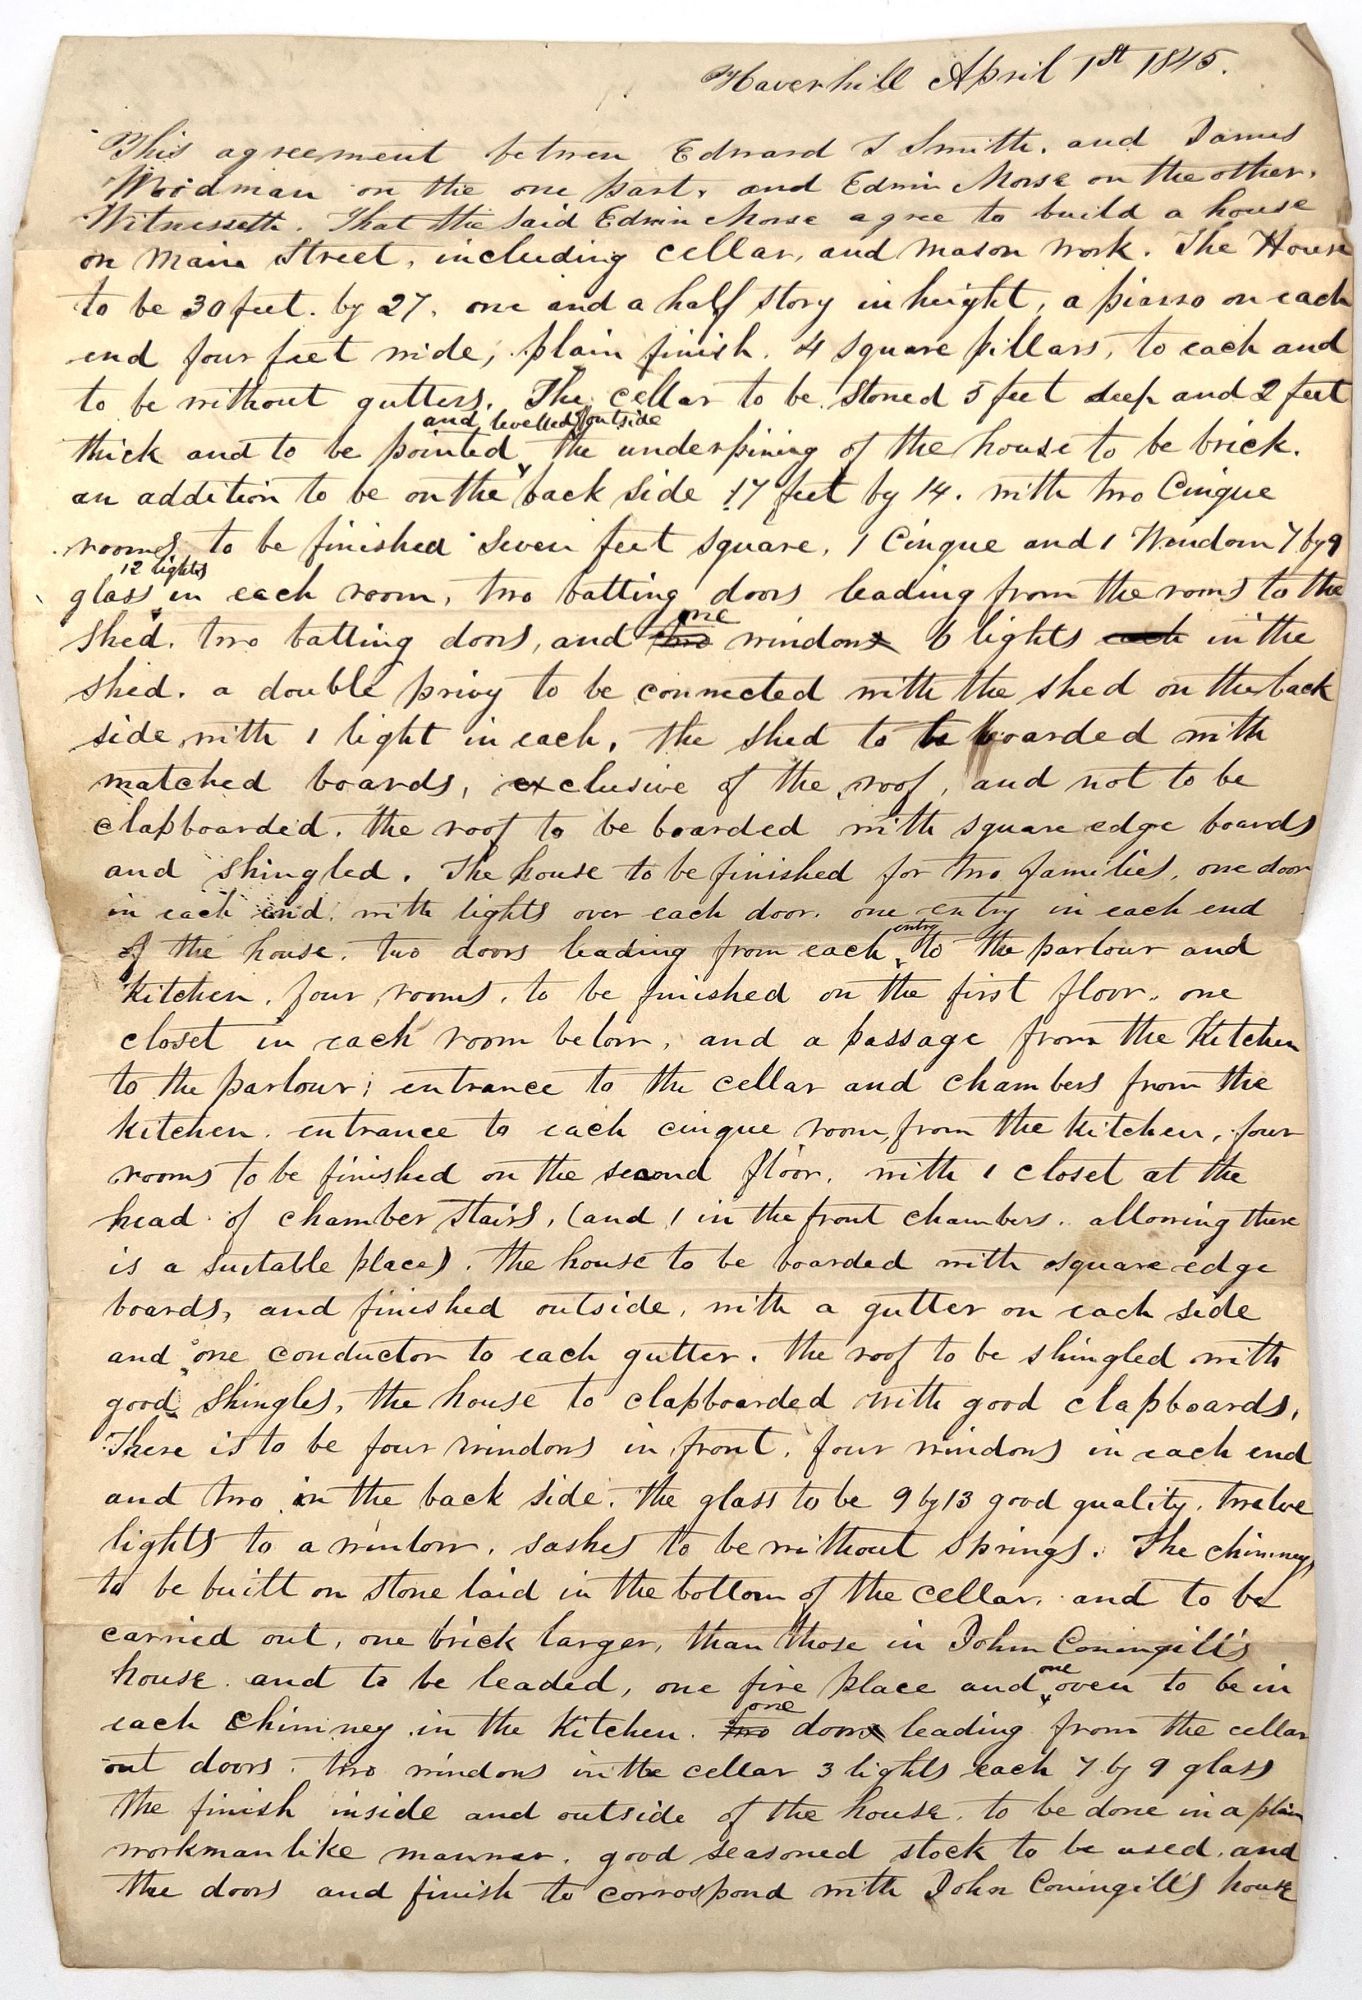 Haverhill April 1st 1845.
This agreement betwen Edward S Smith. and James
Woodman on the one part, and Edwin Morse on the other.
Witnesseth. That the said Edwin Morse agree to build a house
on Main Street, including cellar, and mason work. The House
to be 30 feet. by 27. one and a half story in height, a piazzo on each
end four feet wide, plain finish. 4 square pillars, to each and
to be without gutters. The cellar to be stoned 5 feet deep and 2 feet
and levelled outside
thick and to be pointed the underpining of the house to be brick.
an addition to be on the back side 17 feet by 14. with two Cinque
rooms to be finished seven feet square, 1 Cinque and 1 Window 7 by 9
12 lights
glass in each room, two batting doors leading from the roms to the
one
shed. two batting doors, and two windows 6 lights each in the
shed. a double privy to be connected with the shed on the back
side with 1 light in each, the shed to be boarded with
matched boards, exclusive of the roof, and not to be
clapboarded. the roof to be boarded with square edge boards
and shingled. The house to be finished for two families, one door
in each end. with lights over each door. one entry in each end
entry
of the house. two doors leading from each to the parlour and
kitchen. four rooms. to be finished on the first floor. one
closet in each room below, and a passage from the kitchen
to the parlour; entrance to the cellar and chambers from the
kitchen. entrance to each cinque room, from the kitchen, four
rooms to be finished on the second floor. with 1 closet at the
head of chamber stairs, (and 1 in the front chambers. allowing there
is a suitable place). the house to be boarded with square edge
boards, and finished outside, with a gutter on each side
and one conductor to each gutter. the roof to be shingled with
good shingles, the house to clapboarded with good clapboards,
There is to be four windows in front. four windows in each end
and two in the back side. the glass to be 9 by 13 good quality. twelve
lights to a window. sashes to be without springs. The chimneys
to be built on stone laid in the bottom of the cellar. and to be
carried out, one brick larger, than those in John Coningill's
house. and to be leaded, one fire place and one oven to be in
one
each chimney in the kitchen. two doors leading from the cellar
out doors. two windows in the cellar 3 lights each 7 by 9 glass
the finish inside and outside of the house. to be done in a plain
workmanlike manner. good seasoned stock to be used. and
the doors and finish to corrospond with John Coningill's house